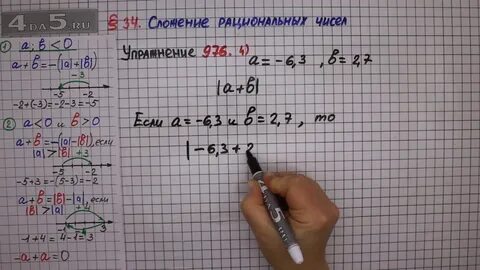 4DA5.RU
§ 34. Сложение рациональных чисел
Упражнение 976. 4)
a = -6,3 , b = 2,7
|a+b|
Если a = -6,3 и b = 2,7 , то
|-6,3 + 2
1) a; b < 0
a + b = -(|a|+|b|)
-3
-5 -2
-2+(-3) = -2-3 = -5
2) a < 0 и b > 0
a + b = -(|a|-|b|), если
|a| > |b| +3
-5 -2
-5+3 = -(5-3) = -2
a + b = |b|-|a|, если
|b| > |a| +4
-1 3
-1+4 = 4-1 = 3
-a + a = 0